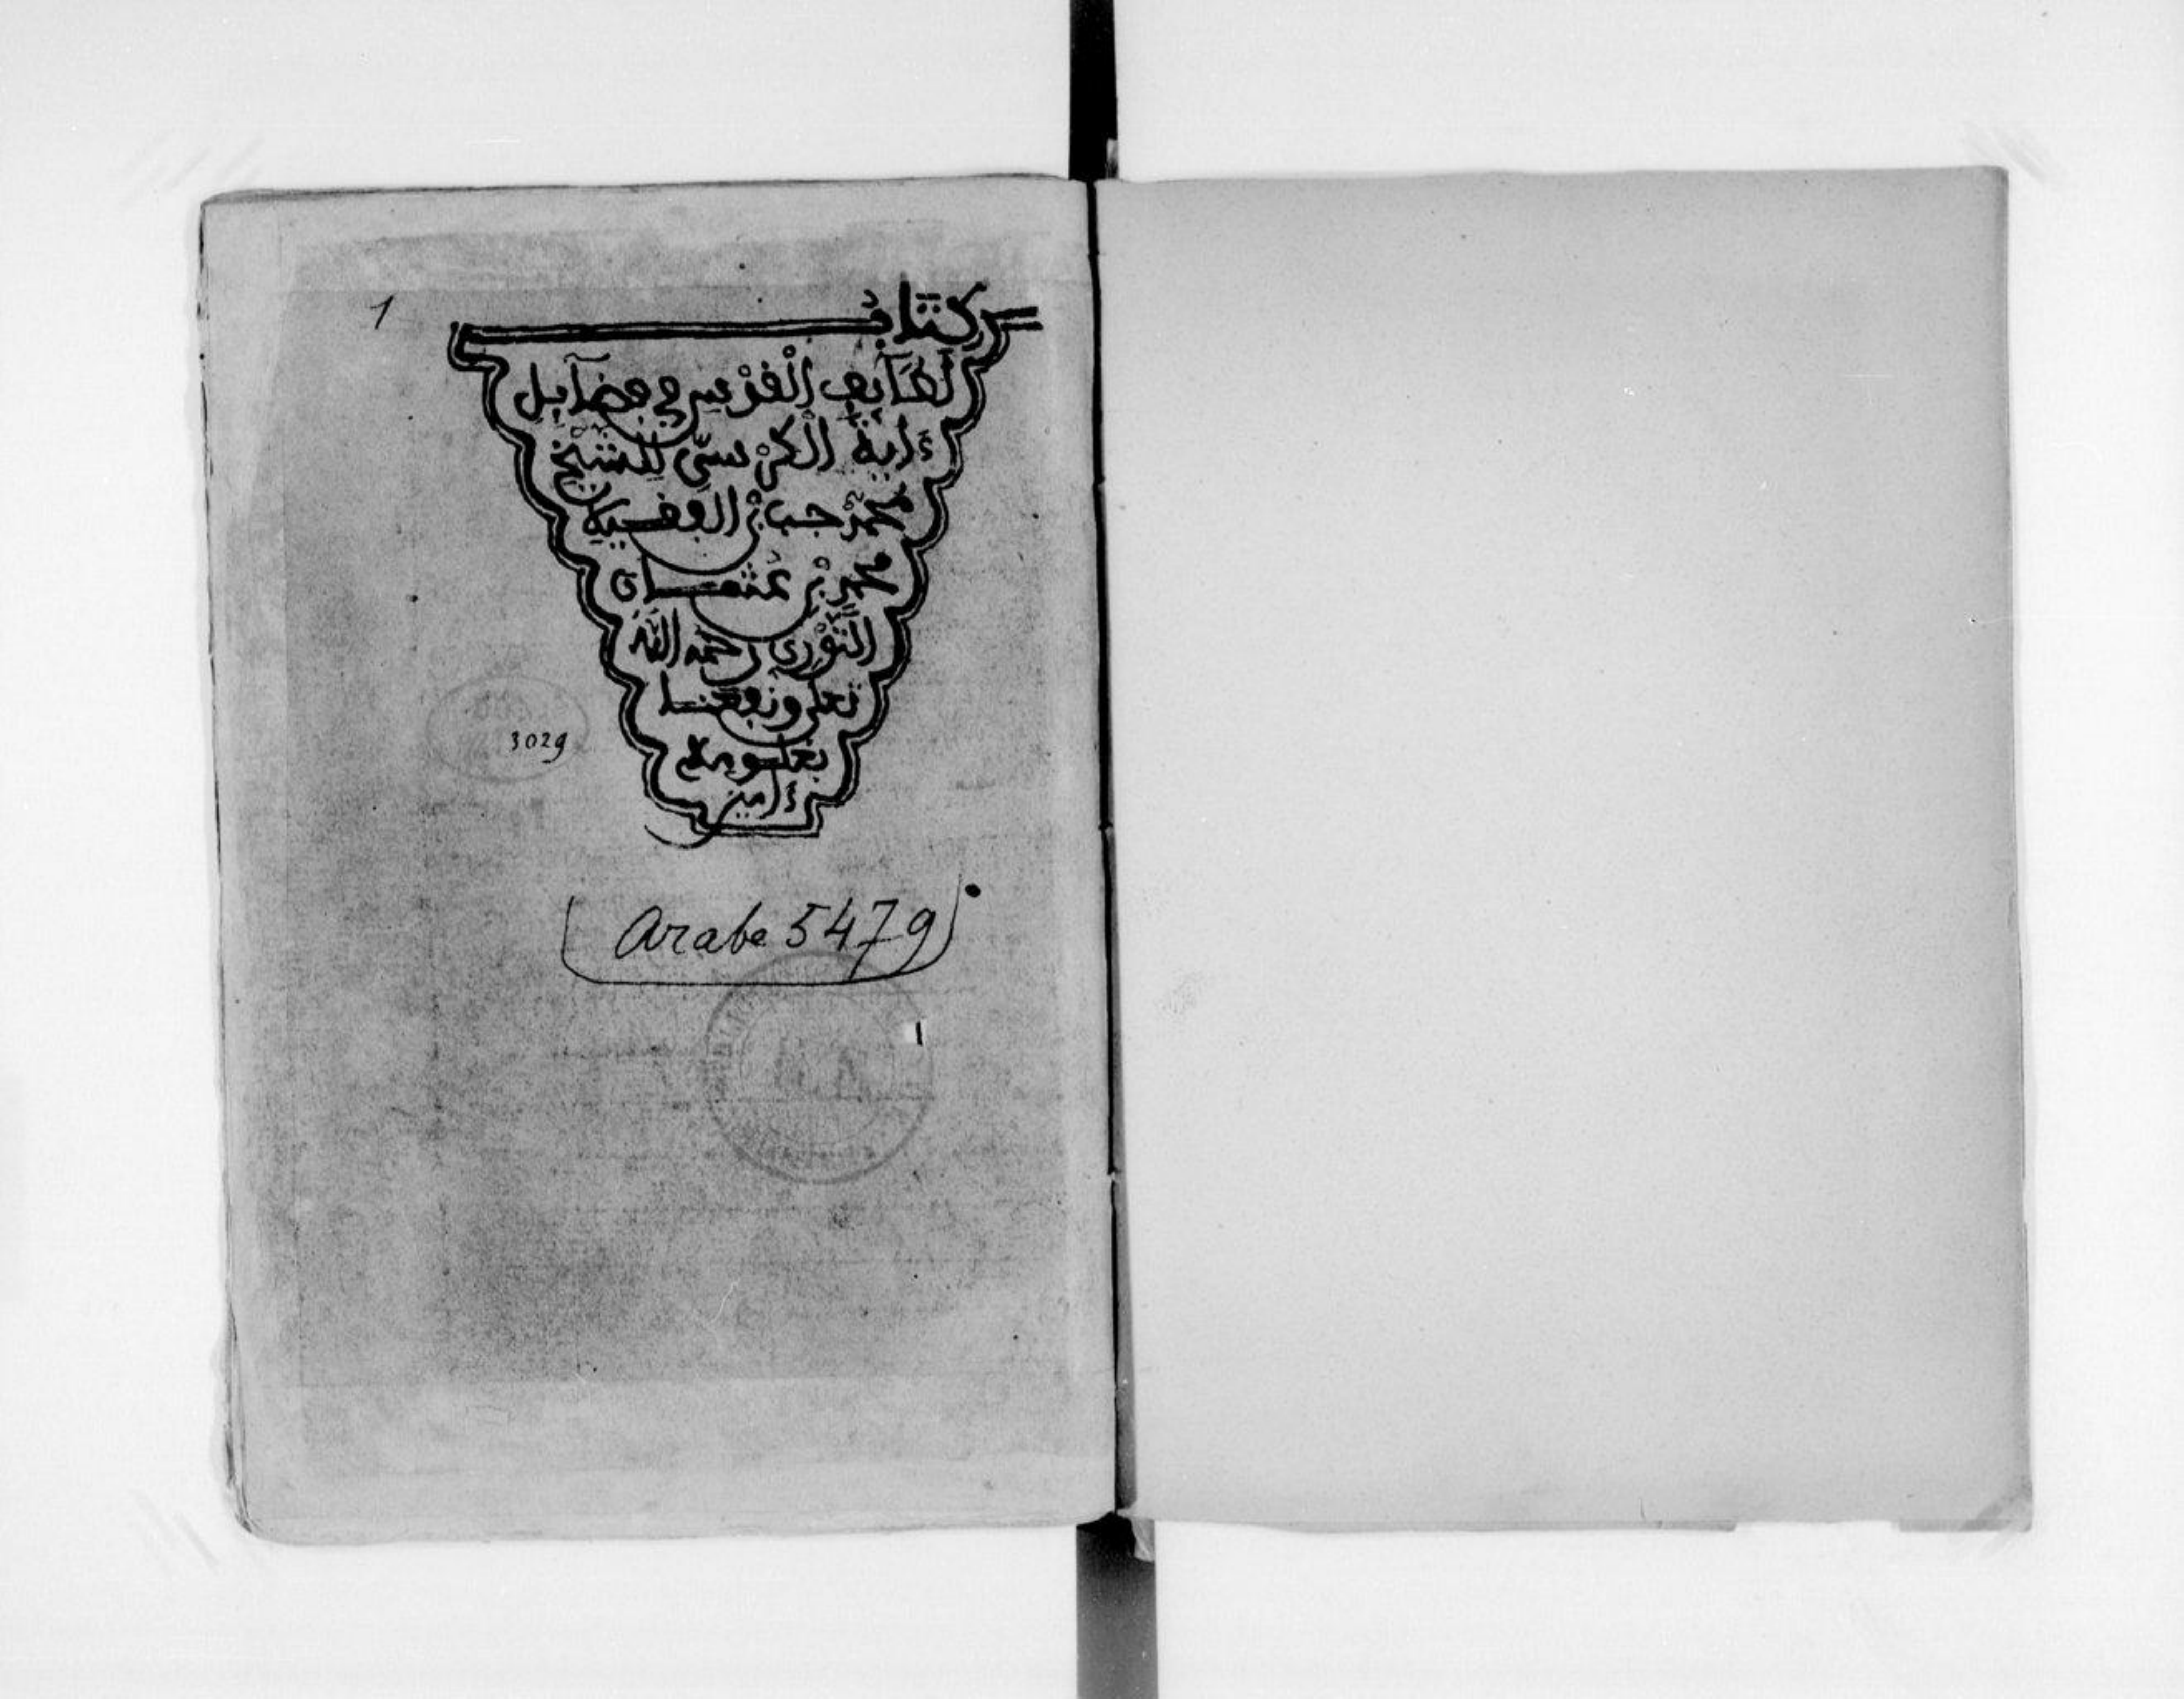 كتاب
لَطَآئِفِ الْقُدْسِ في فضآيل
ءَايَةُ الْكُرْسِيِّ للشيخ
محمد بن الفقيه
محمد بن عثمان
الثَّوْرِي رحمه الله
تعلى ونفعنا
بعلومه
ءَامين
1
3029
Arabe 5479